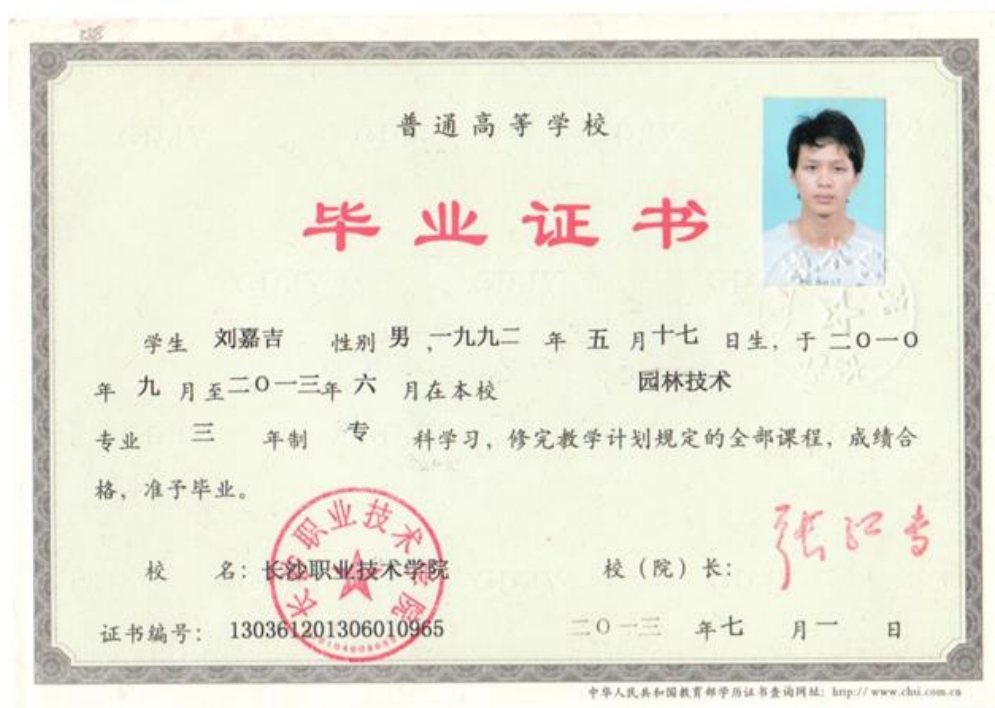 普通高等学校
毕业证书
学生 刘嘉吉 性别 男 ,一九九二 年 五 月十七 日生,于 二〇一〇
年 九 月至二〇一三年 六 月在本校 园林技术
专业 三 年制 专 科学习,修完教学计划规定的全部课程,成绩合
格,准予毕业。
校 名:长沙职业技术学院 校(院)长:
长沙职业技术学院
证书编号:130361201306010965 二〇一三 年七 月一 日
中华人民共和国教育部学历证书查询网址:http://www.chsi.com.cn